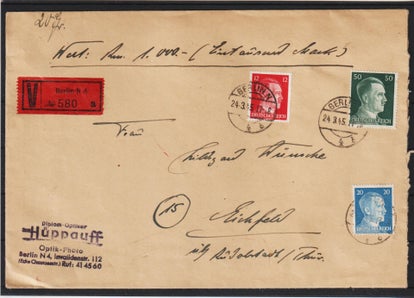 Wert: Rm. 1.000.- (Eintausend Mark)
V
Berlin 4
№ 580 a
BERLIN
24.3.45.
12
DEUTSCHES REICH
BERLIN
24.3.45.
50
DEUTSCHES REICH
Frau
Wünsche
15
Eichfeld
üb/ Rudolstadt / Thür.
20 20
DEUTSCHES REICH
Diplom-Optiker
Hüppauff
Optik-Photo
Berlin N 4, Invalidenstr. 112
(Ecke Chausseestr.) Ruf: 41 45 60